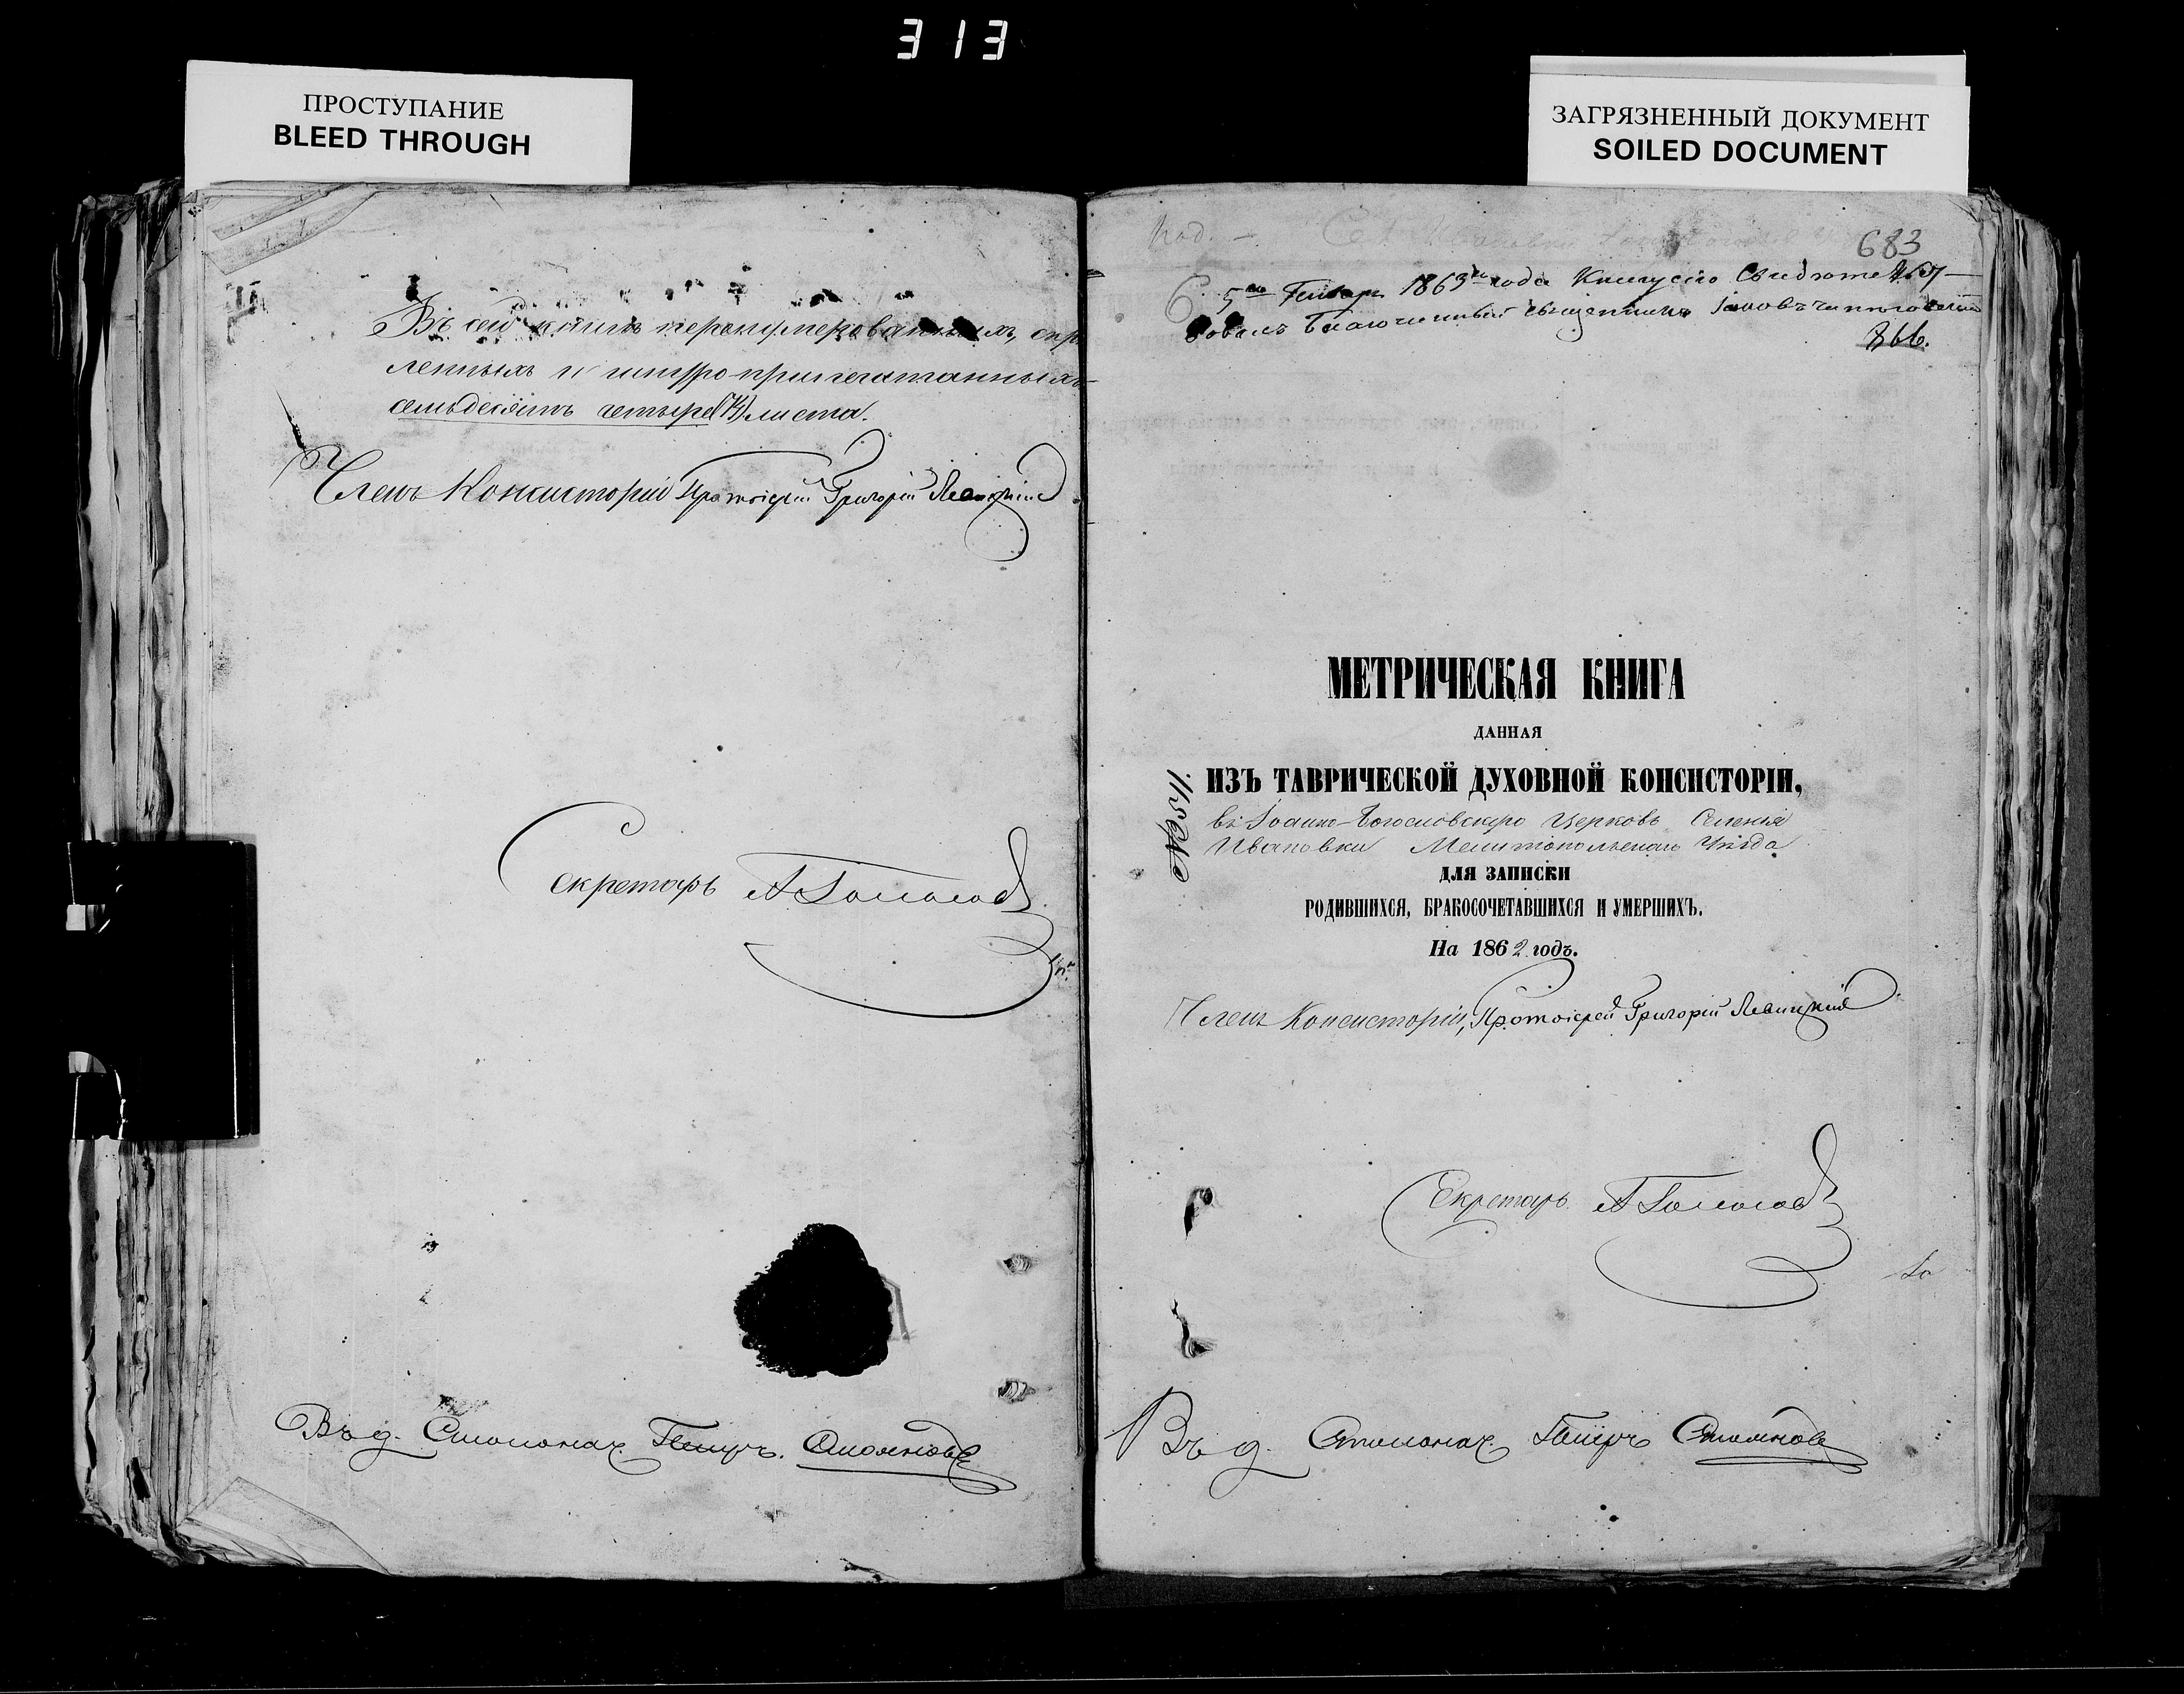 313
ПРОСТУПАНИЕ
BLEED THROUGH
ЗАГРЯЗНЕННЫЙ ДОКУМЕНТ
SOILED DOCUMENT
Въ сей книгѣ перенумерованныхъ, скрѣ
ленныхъ и шнуро-припечатанныхъ
семьдесятъ четыре (74) листа.
Членъ Консисторіи Протоіерей Григорій Левицкій
Секретарь А
Въ д. Столонач. Петръ
683
5го Генваря 1863го года Книгу сію Свидѣтельст-
вовалъ Благочинный Священникъ Іаковъ
МЕТРИЧЕСКАЯ КНИГА
ДАННАЯ
ИЗЪ ТАВРИЧЕСКОЙ ДУХОВНОЙ КОНСИСТОРІИ,
въ Іоанно-Богословскую Церковь Селенія
Ивановки Мелитопольскаго Уѣзда
ДЛЯ ЗАПИСКИ
РОДИВШИХСЯ, БРАКОСОЧЕТАВШИХСЯ И УМЕРШИХЪ.
На 1862 годъ.
Членъ Консисторіи, Протоіерей Григорій Левицкій
Секретарь А
Въ д. Столонач. Петръ